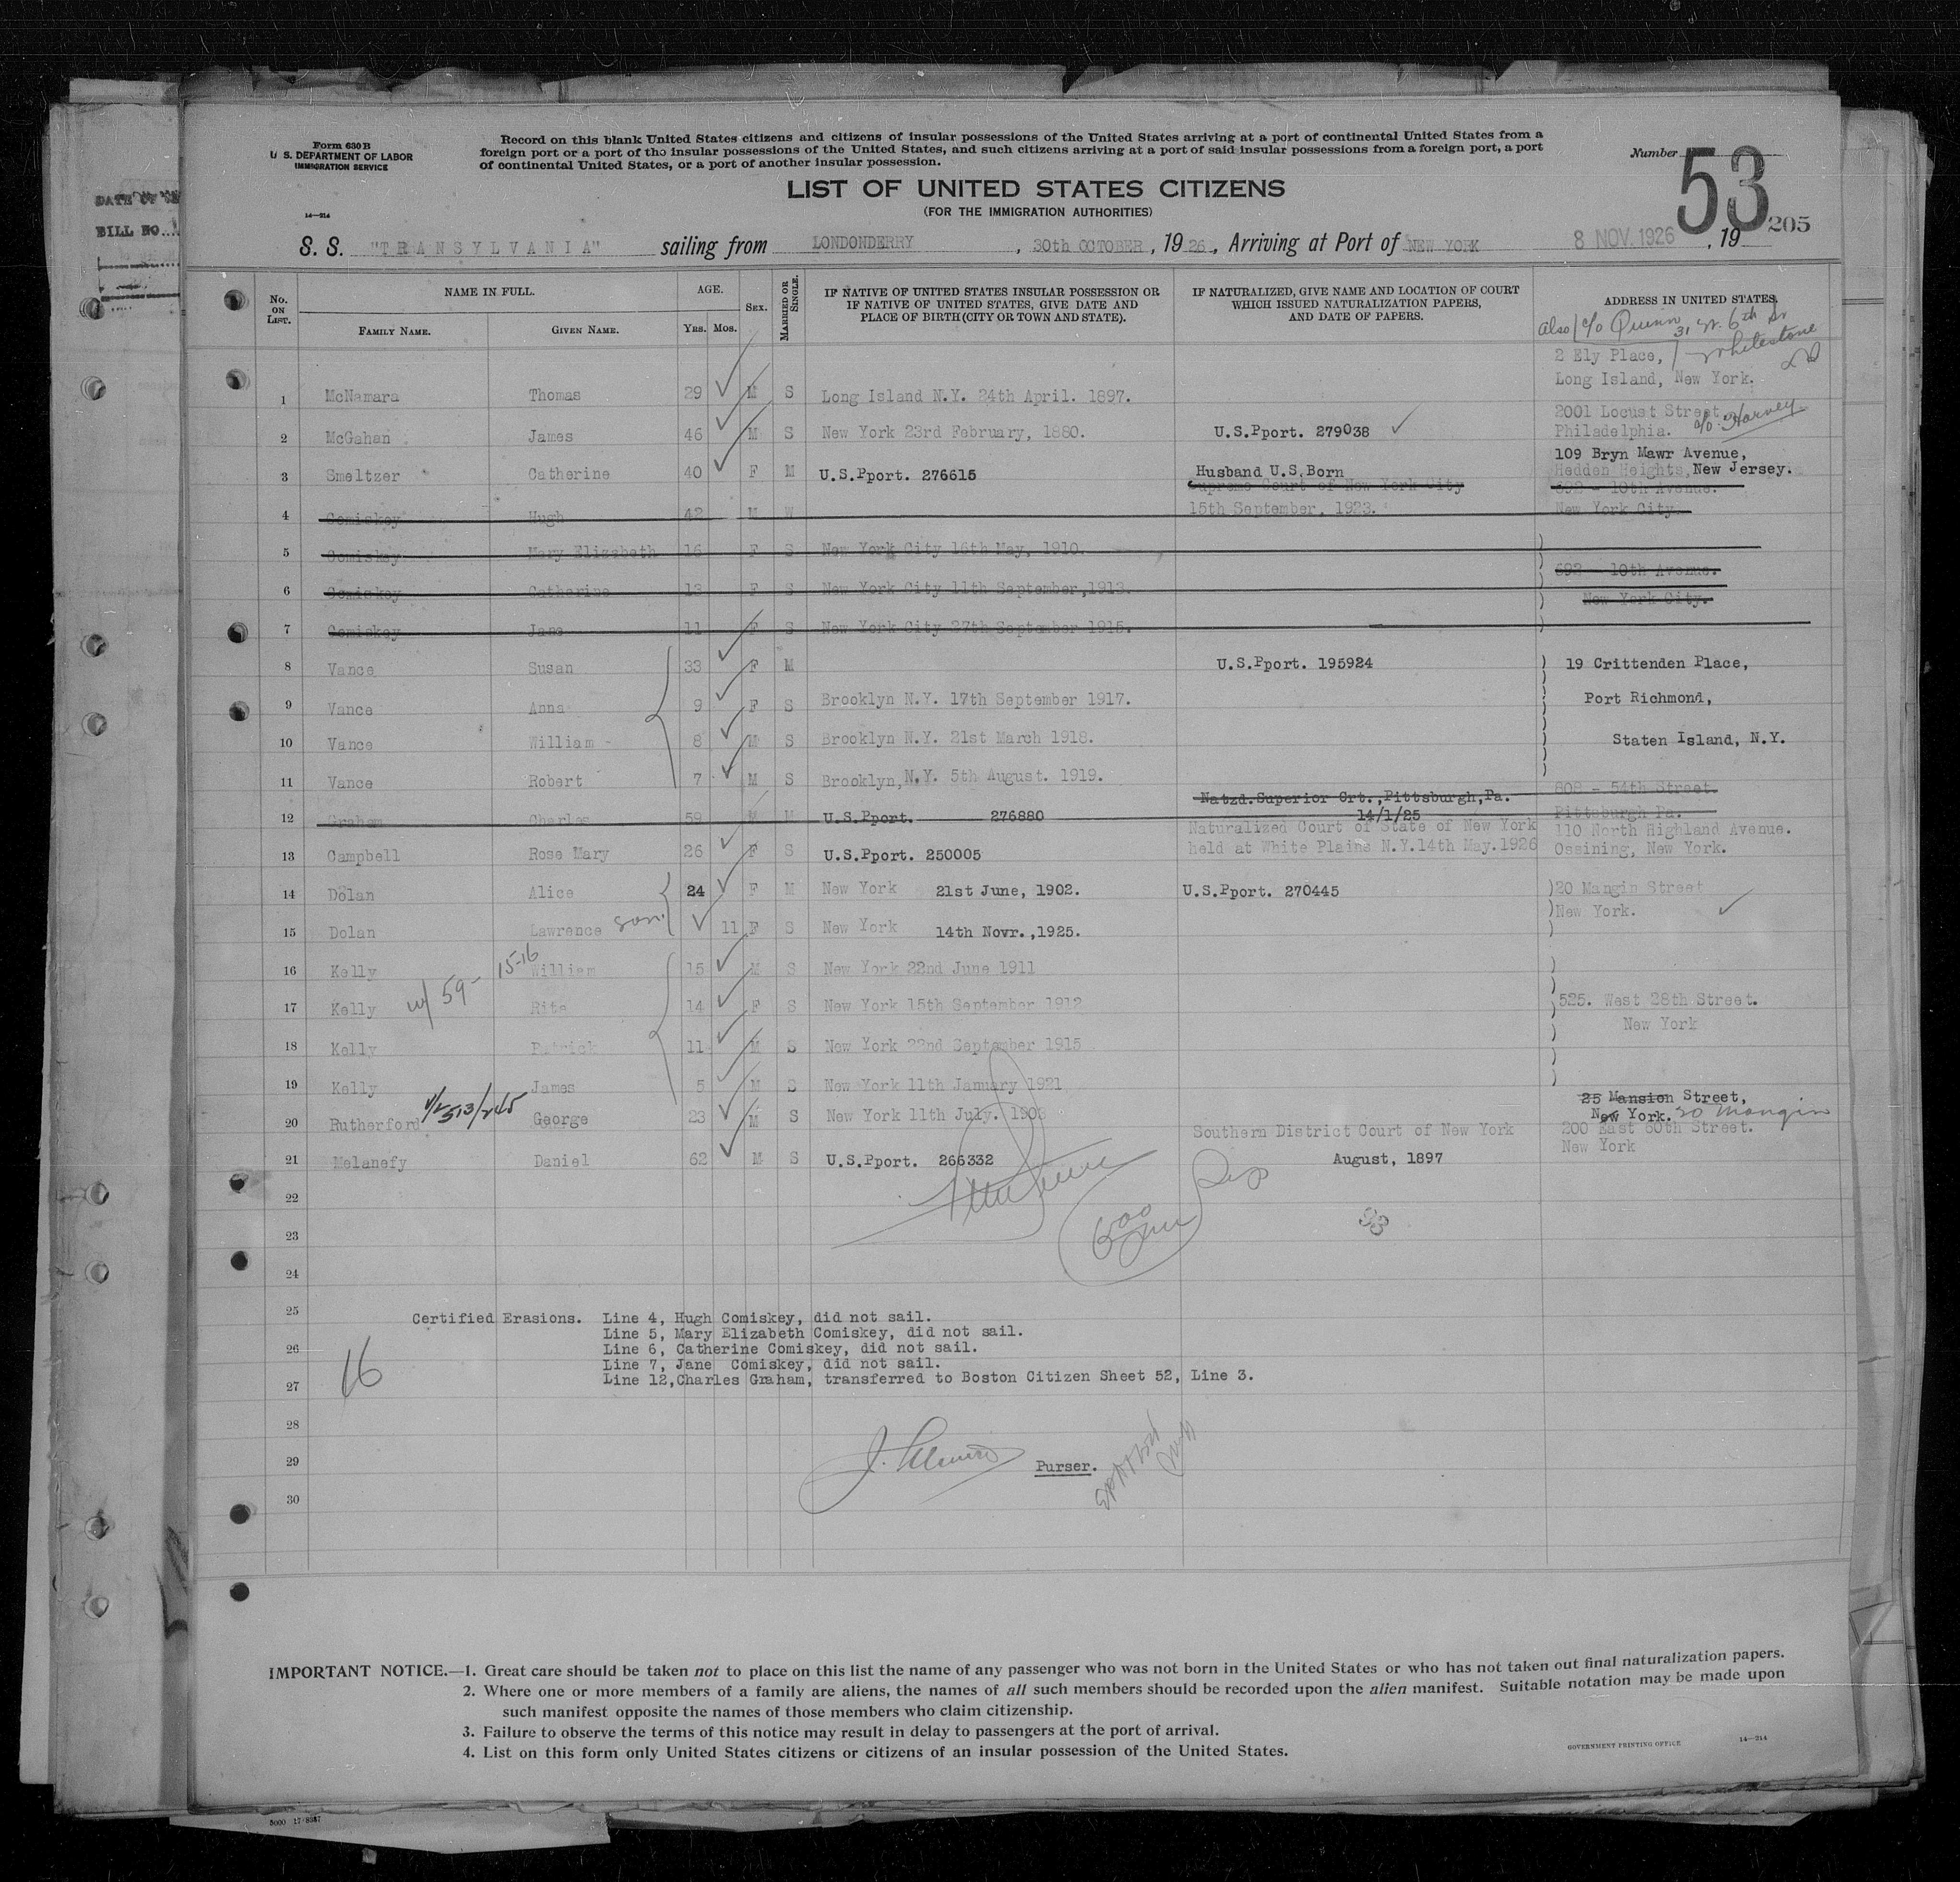 DATE OF
BILL NO.
Form 630 B
U. S. DEPARTMENT OF LABOR
IMMIGRATION SERVICE
14—214
Record on this blank United States citizens and citizens of insular possessions of the United States arriving at a port of continental United States from a
foreign port or a port of the insular possessions of the United States, and such citizens arriving at a port of said insular possessions from a foreign port, a port
of continental United States, or a port of another insular possession.
Number 53
205
LIST OF UNITED STATES CITIZENS
(FOR THE IMMIGRATION AUTHORITIES)
S. S. "TRANSYLVANIA" sailing from LONDONDERRY, 30th OCTOBER, 1926, Arriving at Port of NEW YORK 8 NOV. 1926, 19
No. ON LIST. NAME IN FULL. AGE. SEX. MARRIED OR SINGLE. IF NATIVE OF UNITED STATES INSULAR POSSESSION OR IF NATIVE OF UNITED STATES, GIVE DATE AND PLACE OF BIRTH (CITY OR TOWN AND STATE). IF NATURALIZED, GIVE NAME AND LOCATION OF COURT WHICH ISSUED NATURALIZATION PAPERS, AND DATE OF PAPERS. ADDRESS IN UNITED STATES.
FAMILY NAME. GIVEN NAME. Yrs. Mos.
also c/o Quinn 31 6th
Whitestone
2 Ely Place,
Long Island, New York.
1 McNamara Thomas 29 M S Long Island N.Y. 24th April. 1897.
2001 Locust Street.
2 McGahan James 46 M S New York 23rd February, 1880. U.S.Pport. 279038 Philadelphia. c/o Harvey
109 Bryn Mawr Avenue,
3 Smeltzer Catherine 40 F M U.S.Pport. 276615 Husband U.S.Born Hadden Heights, New Jersey.
Supreme Court of New York City 692 - 10th Avenue.
4 Comiskey Hugh 42 M W 15th September, 1923. New York City.
5 Comiskey Mary Elizabeth 16 F S New York City 16th May, 1910.
692 - 10th Avenue.
6 Comiskey Catherine 13 F S New York City 11th September, 1913.
New York City.
7 Comiskey Jane 11 F S New York City 27th September 1915.
8 Vance Susan 33 F M U.S.Pport. 195924 19 Crittenden Place,
9 Vance Anna 9 F S Brooklyn N.Y. 17th September 1917. Port Richmond,
10 Vance William 8 M S Brooklyn N.Y. 21st March 1918. Staten Island, N.Y.
11 Vance Robert 7 M S Brooklyn, N.Y. 5th August. 1919.
Natzd.Superior Crt.,Pittsburgh,Pa. 808 - 54th Street.
12 Graham Charles 59 M M U.S.Pport. 276880 14/1/25 Pittsburgh Pa.
Naturalized Court of State of New York 110 North Highland Avenue.
13 Campbell Rose Mary 26 F S U.S.Pport. 250005 held at White Plains N.Y.14th May.1926 Ossining, New York.
14 Dolan Alice 24 F M New York 21st June, 1902. U.S.Pport. 270445 20 Mangin Street
New York.
15 Dolan Lawrence son. 11 F S New York 14th Novr.,1925.
15-16
16 Kelly William 15 M S New York 22nd June 1911
w/ 59-
17 Kelly Rita 14 F S New York 15th September 1912 525. West 28th Street.
New York
18 Kelly Patrick 11 M S New York 22nd September 1915
19 Kelly James 5 M S New York 11th January 1921
25 Mansion Street,
New York. 20 Mangin
20 Rutherford George 23 M S New York 11th July.
Southern District Court of New York 200 East 60th Street.
21 Melanefy Daniel 62 M S U.S.Pport. 266332 August, 1897 New York
22
23
24
25 Certified Erasions. Line 4, Hugh Comiskey, did not sail.
Line 5, Mary Elizabeth Comiskey, did not sail.
26 Line 6, Catherine Comiskey, did not sail.
Line 7, Jane Comiskey, did not sail.
27 Line 12,Charles Graham, transferred to Boston Citizen Sheet 52, Line 3.
16
28
29 Purser.
30
IMPORTANT NOTICE.—1. Great care should be taken not to place on this list the name of any passenger who was not born in the United States or who has not taken out final naturalization papers.
2. Where one or more members of a family are aliens, the names of all such members should be recorded upon the alien manifest. Suitable notation may be made upon
such manifest opposite the names of those members who claim citizenship.
3. Failure to observe the terms of this notice may result in delay to passengers at the port of arrival.
4. List on this form only United States citizens or citizens of an insular possession of the United States.
GOVERNMENT PRINTING OFFICE 14—214